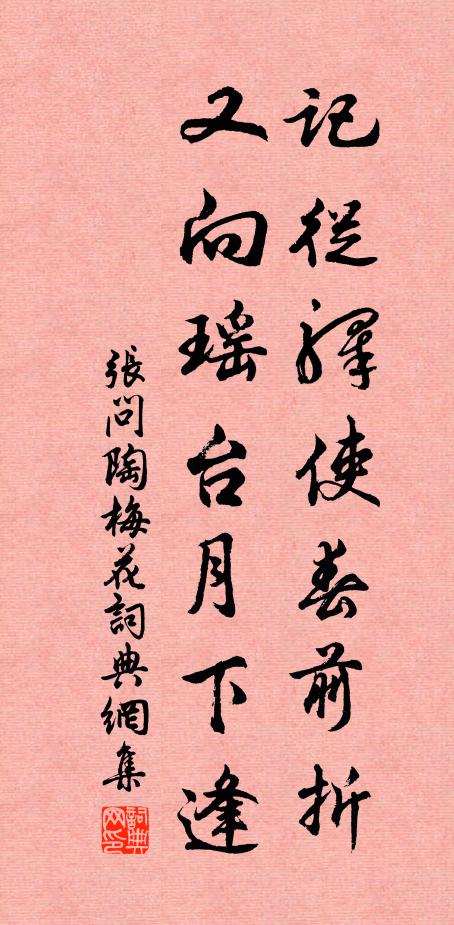 記從驛使春前折
又向瑤台月下逢
張問陶梅花詞典網集
詞典网印